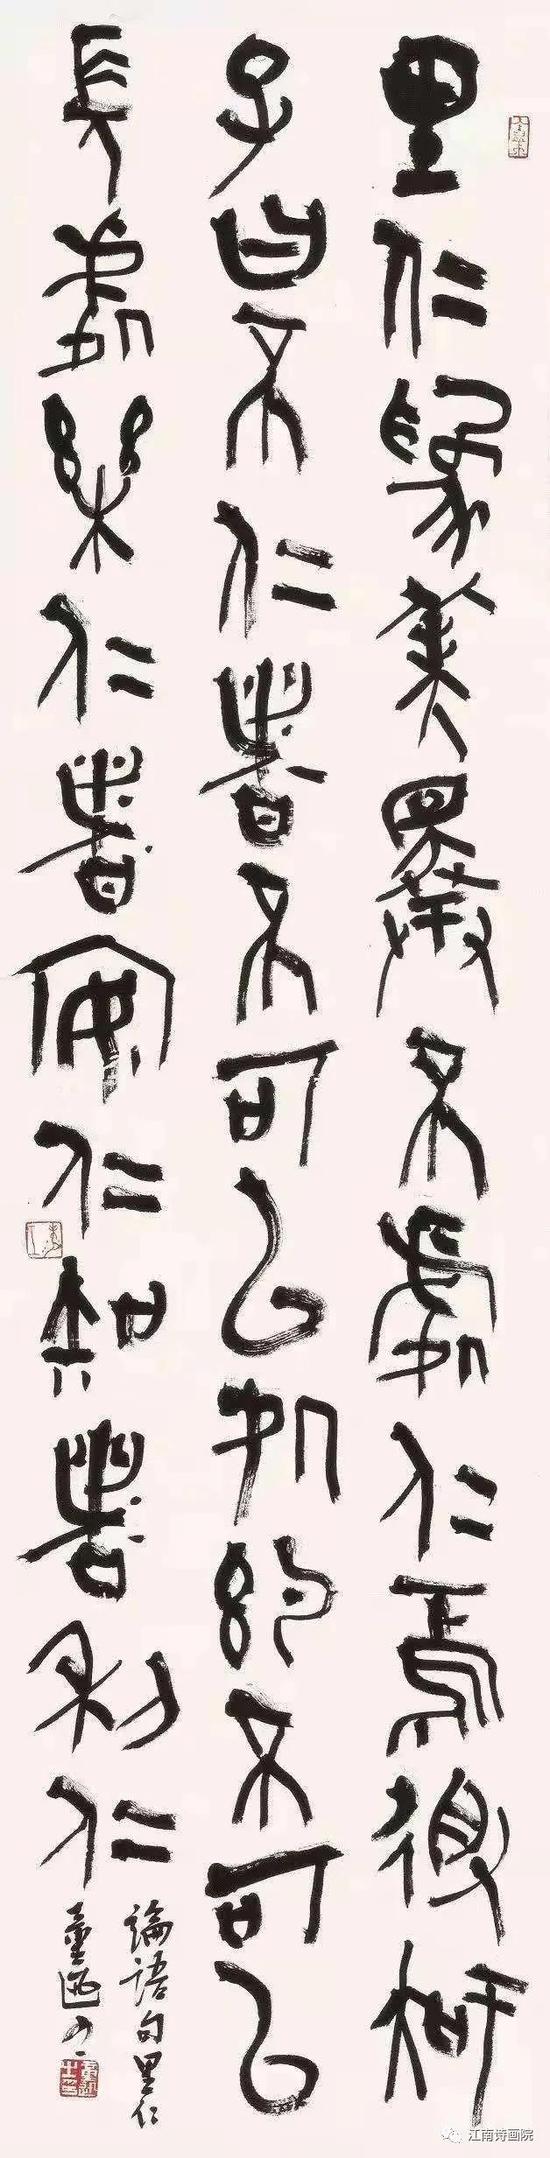 里仁為美擇不處仁焉得知
子曰不仁者不可以処約不可以
長處樂仁者安仁知者利仁
論語句里仁
江南诗画院